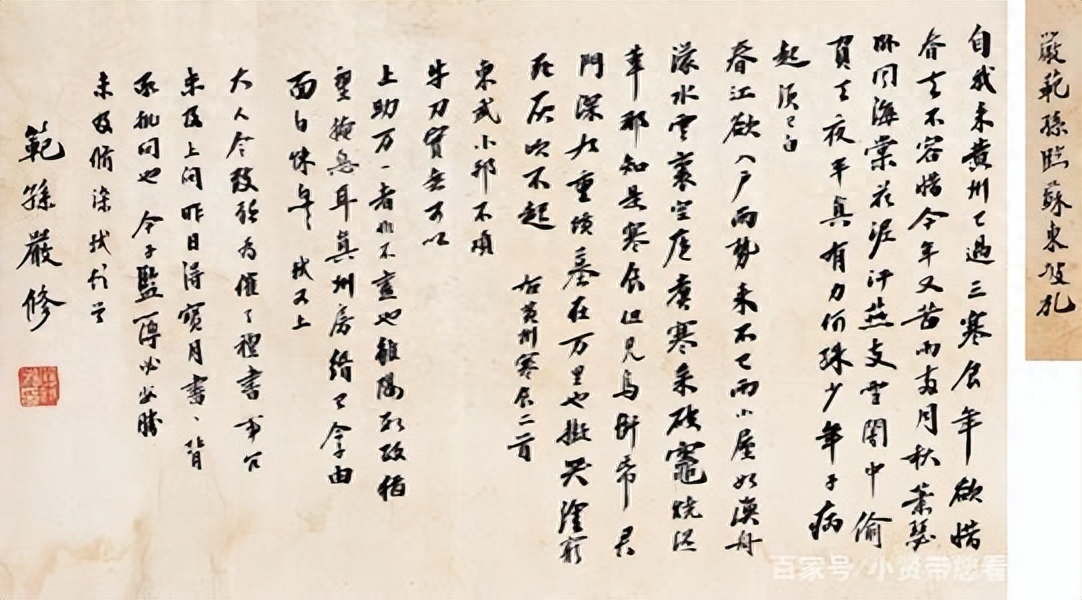 嚴範孫臨蘇東坡札
自我来黄州已過三寒食年欲惜
春去不容惜今年又苦雨兩月秋蕭瑟
卧聞海棠花泥汙燕支雪闇中偷
負去夜半真有力何殊少年子病
起須已白
春江欲入户雨勢来不已雨小屋如漁舟
濛水雲裏空庖煮寒菜破竈燒溼
葦那知是寒食但見烏銜帋君
門深九重墳墓在万里也擬哭塗窮
死灰吹不起 右黄州寒食二首
東武小邦不煩
牛刀實無可以
上助万一者非不盡也雖隔數政猶
望掩惡耳真州房緡已令子由
面白悚息 軾又上
大人令致懇為催了禮書事冗
未及上問昨日得寶月書、背
承批問也令子監簿必安勝
未及修染軾頓首
範孫嚴修
百家号/小带您看